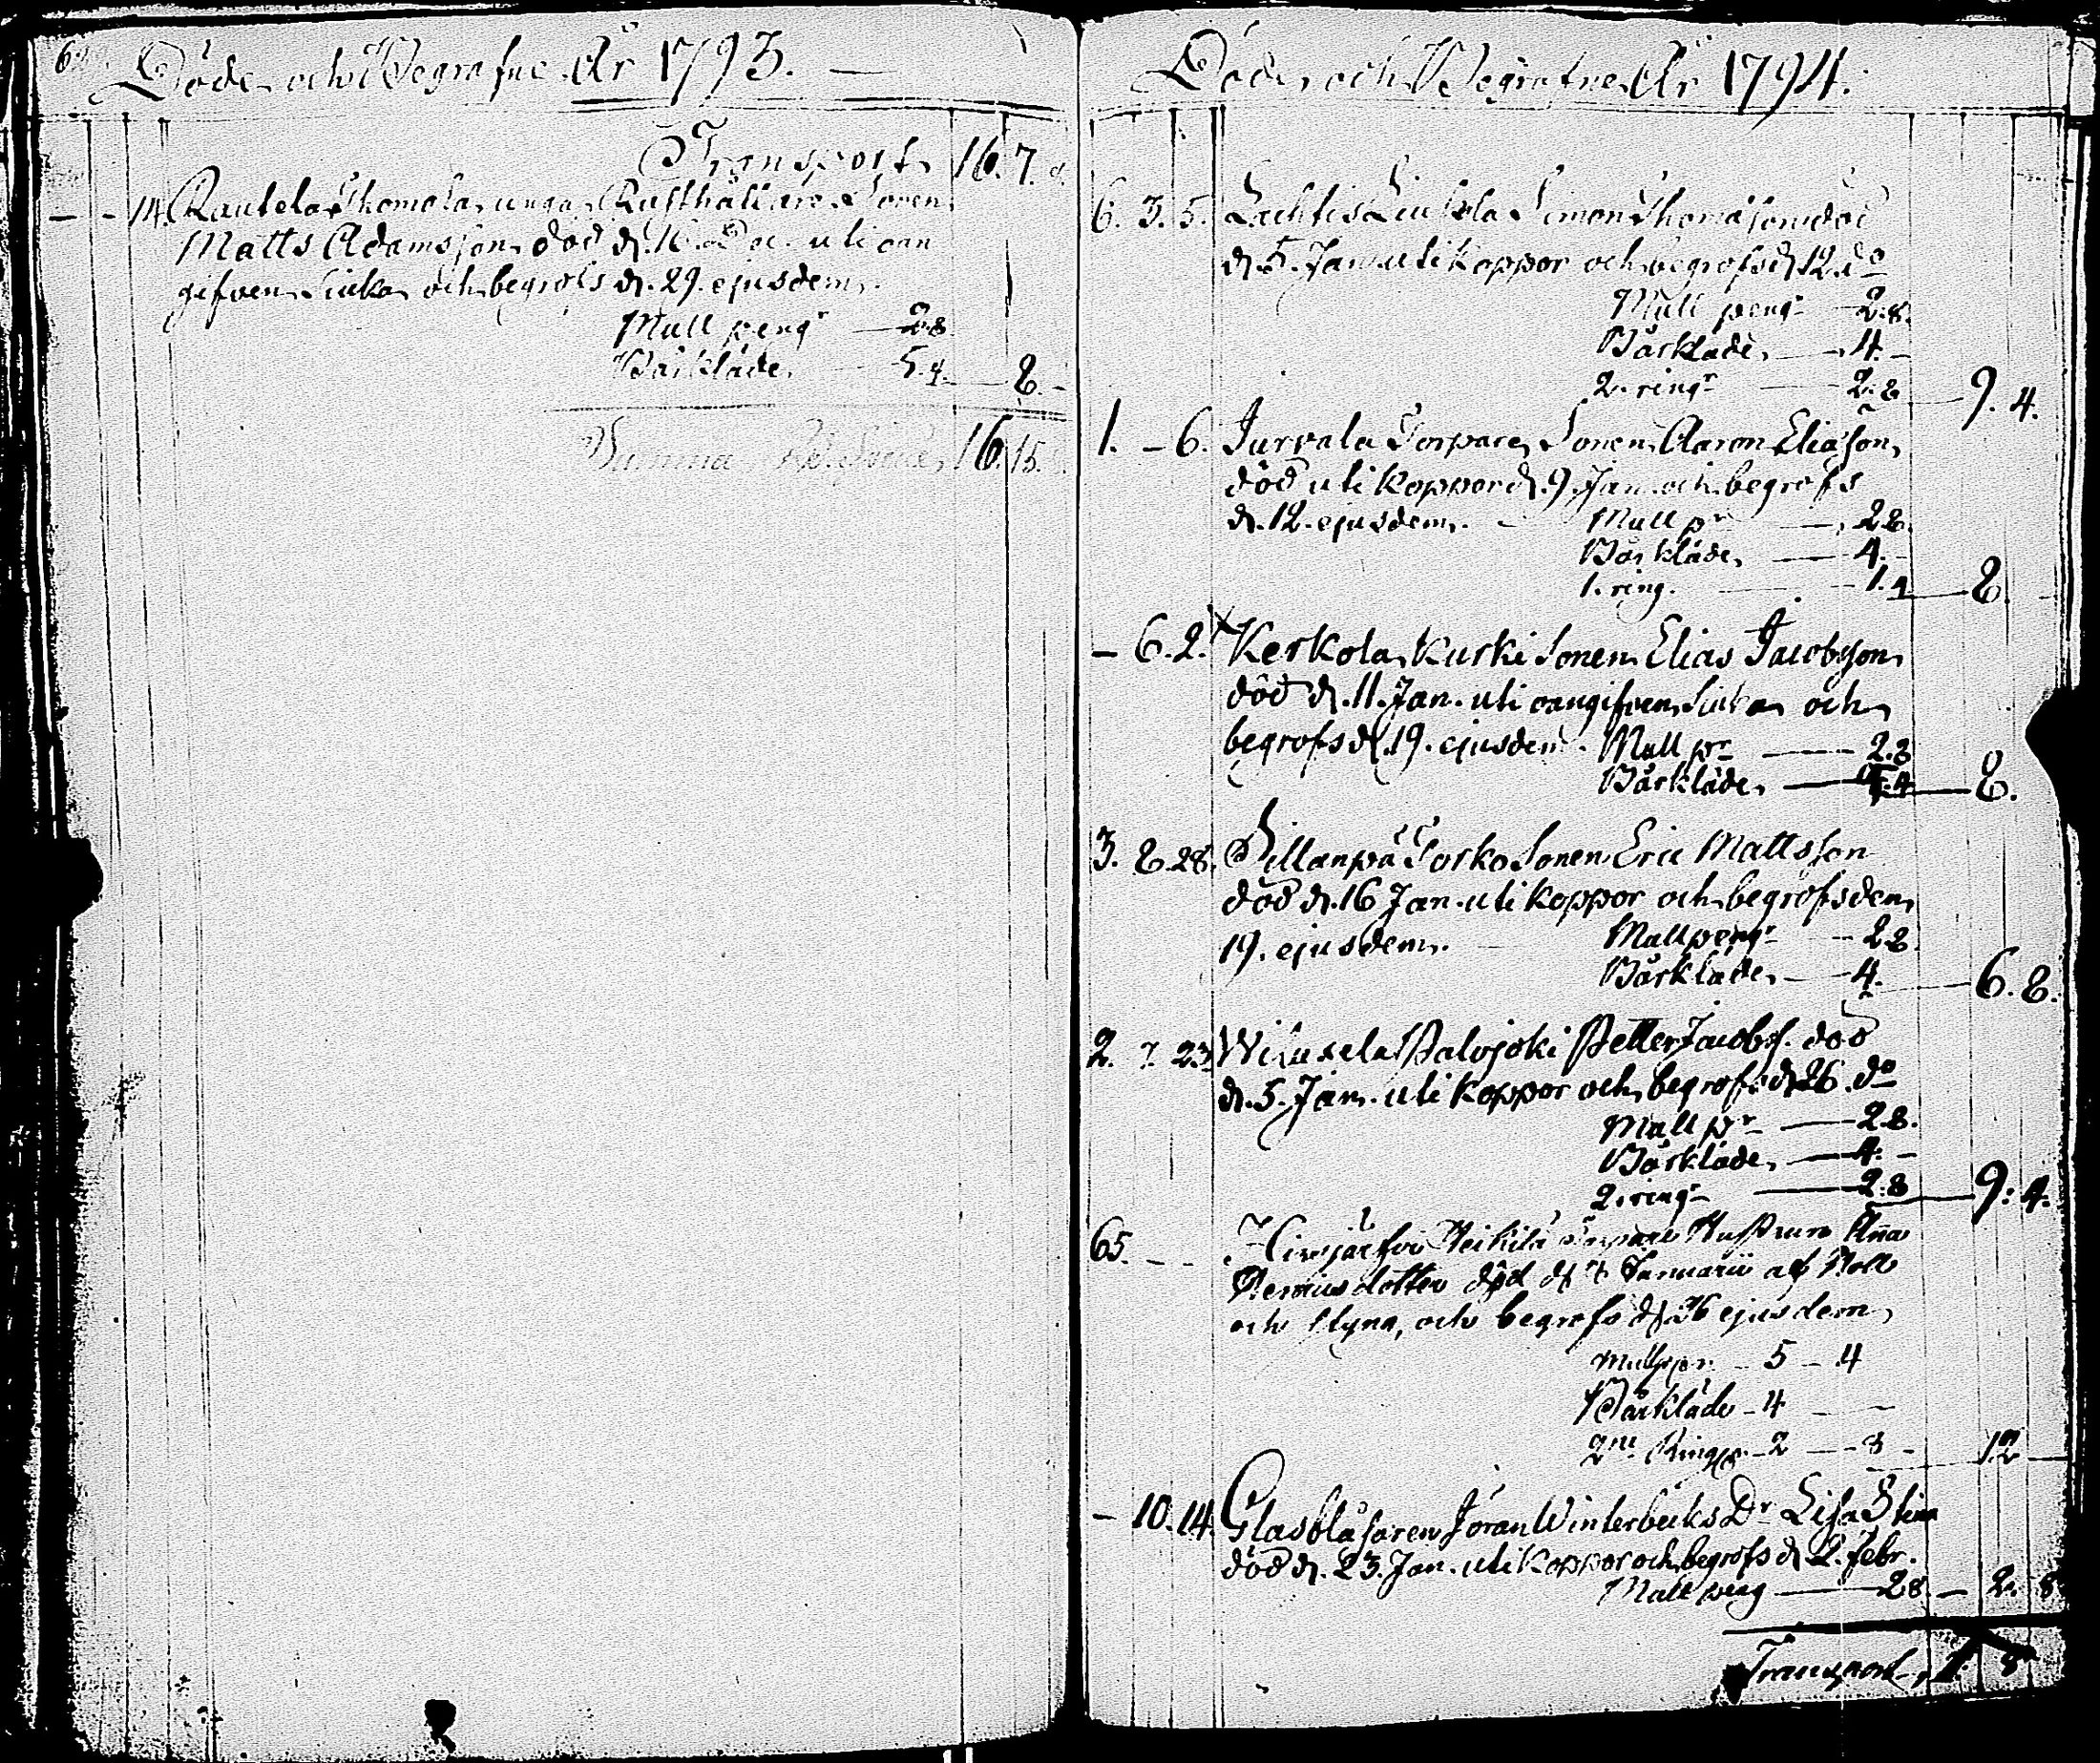 Döde och Begrafne År 1793.
Transport 16. 7.
- - 14. Rautela Thomola unga Rusthållare Sonen
Matts Adamsson död d. 16. Dec. uti oan
gifven Siuka och begrofs d. 29. ejusdem.
Mull peng:r 2.8
Bårkläde 5.4 8. -
Summa 16. 15.
Döde och Begrafne År 1794.
6. 3. 5. Simon Thomasson död
d. 5. Jan. uti Koppor och begrofs d. 12. do
Mull peng:r 2.8.
Bårkläde 4. -
2. ring:r 2.8 9. 4.
1. - 6. Jurvala Torpare Sonen Aaron Eliasson
död uti Koppor d. 9. Jan. och begrofs
d. 12. ejusdem. Mull p:r 2.8.
Bårkläde 4. -
1. ring. 1.4 8. -
- 6. 2. Kerkola Kurki Sonen Elias Jacobsson
död d. 11. Jan. uti oangifven Siuka och
begrofs d. 19. ejusdem. Mull p:r 2.8
Bårkläde 8.
3. 8. 28. Sillanpä Torko Sonen Eric Mattsson
död d. 16 Jan. uti Koppor och begrofs den
19. ejusdem. Mull peng:r 2.8.
Bårkläde 4. 6. 8.
2. 7. 23 Palojoki Petter Jacobss. död
d. 5. Jan. uti Koppor och begrofs d. 26. do
Mull p:r 2.8.
Bårkläde 4. -
2. ring:r 2.8 9. 4.
65. - - Hirsjärfvi Heikilä Torpare Hustrun Anna
död d. 7 Januarii af Håll
och Styng, och begrofs d. 26 ejusdem
Mullpgr. 5 - 4
Bårkläde - 4 -
2ne Ringgr. - 2 - 8 - 12 -
- 10. 14. Glasblåsaren Jöran Winterbecks D:r Lisa Stina
död d. 23. Jan. uti Koppor och begrofs d. 2. febr.
Mull peng 2.8 - 2. 8
Transport 1. 8